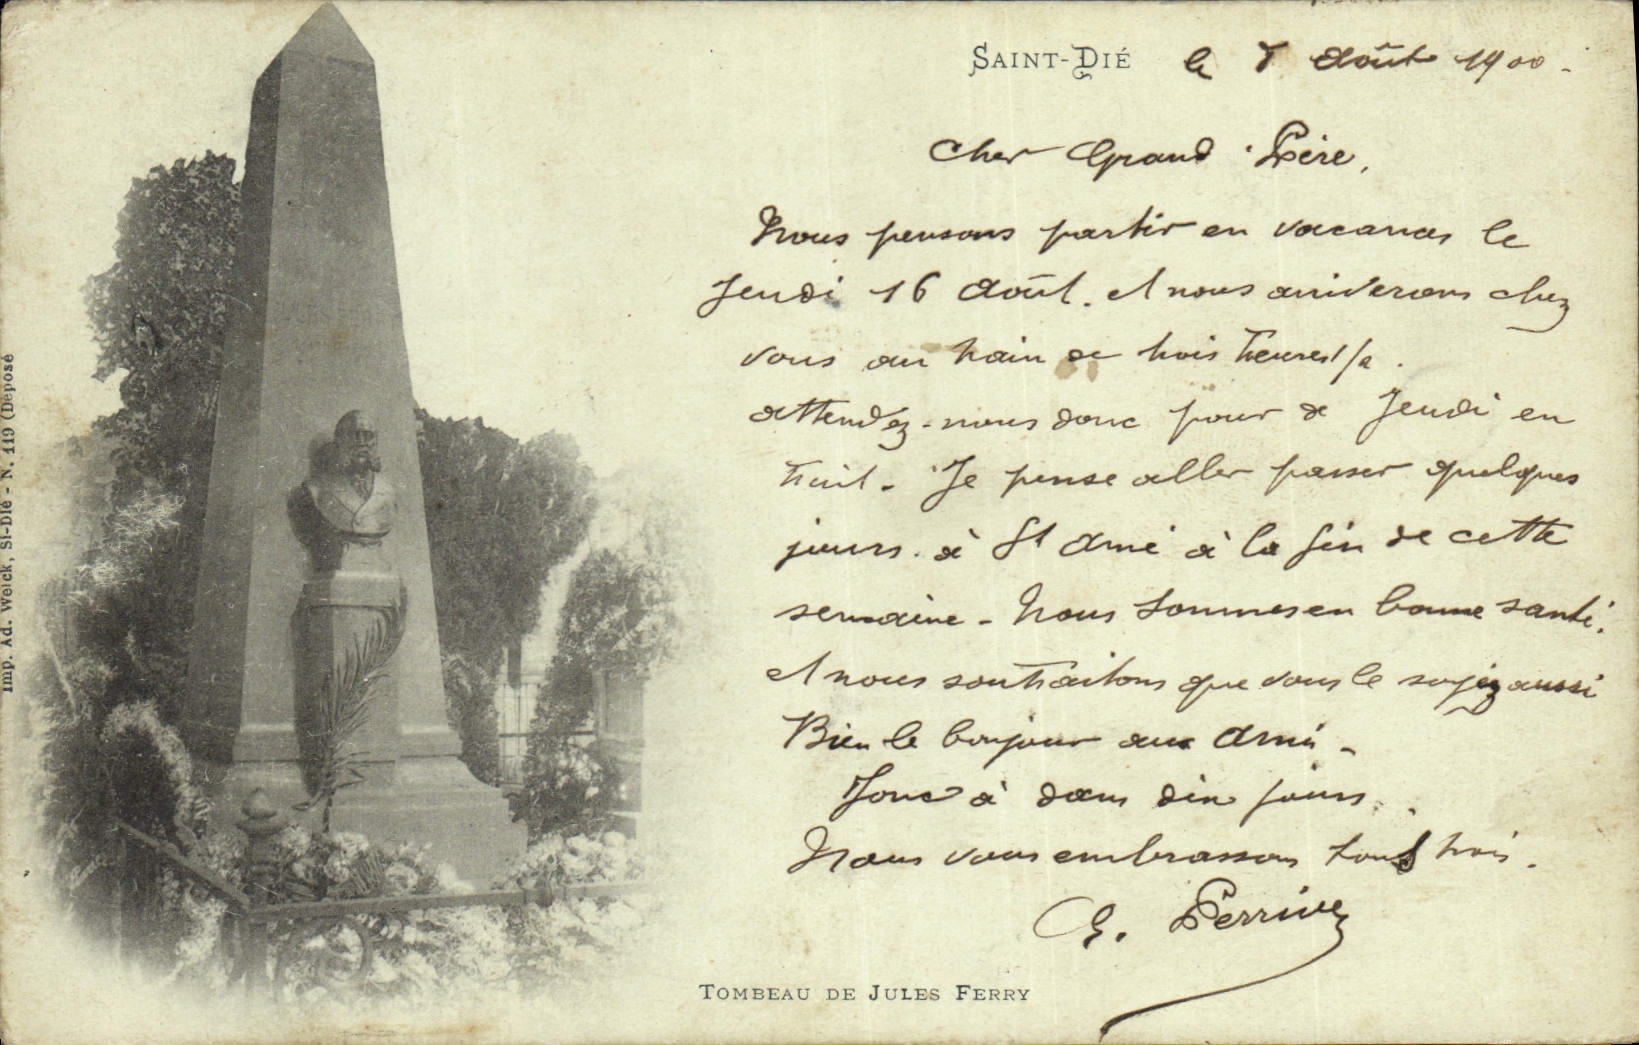 SAINT-DIÉ le août 1900.
Cher Grand Père,
Nous pensons partir en vacances le
Jeudi 16 Août. et nous arriverons chez
vous au train de trois heures 1/2.
attendez-nous donc pour ce Jeudi en
huit. Je pense aller passer quelques
jours à St Amé à la fin de cette
semaine - Nous sommes en bonne santé.
et nous souhaitons que vous le soyez aussi
Bien le bonjour aux Amé -
Donc à dans dix jours.
Nous vous embrassons tous trois.
TOMBEAU DE JULES FERRY
Imp. Ad. Weick, St-Dié - N. 119 (Déposé